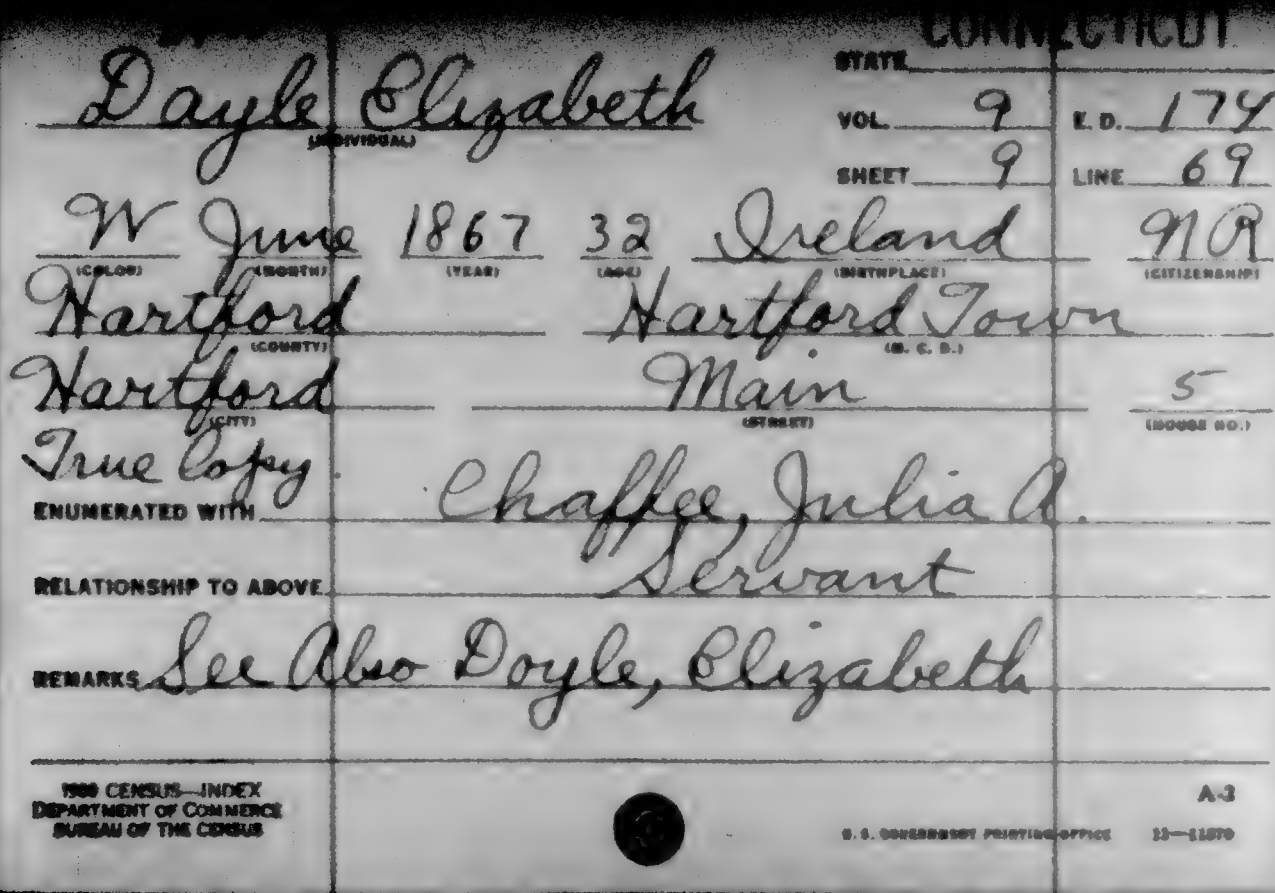 CONNECTICUT
STATE
Dayle Elizabeth
(INDIVIDUAL)
VOL. 9 E. D. 174
SHEET 9 LINE 69
W June 1867 32 Ireland NR
(COLOR) (MONTH) (YEAR) (AGE) (BIRTHPLACE) (CITIZENSHIP)
Hartford Hartford Town
(COUNTY) (M. C. D.)
Hartford Main 5
(CITY) (STREET) (HOUSE NO.)
True Copy
ENUMERATED WITH Chaffee, Julia A.
RELATIONSHIP TO ABOVE Servant
REMARKS See Also Doyle, Elizabeth
1900 CENSUS—INDEX
DEPARTMENT OF COMMERCE
BUREAU OF THE CENSUS
A-3
U. S. GOVERNMENT PRINTING OFFICE 11—11870